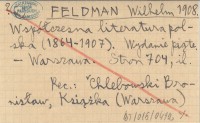 FELDMAN Wilhelm 1908.
Współczesna literatura pol-
ska (1864-1907). Wydanie piąte.
- Warszawa. Stron 704, il.
Rec.: Chlebowski Bro-
nisław, Książka (Warszawa)